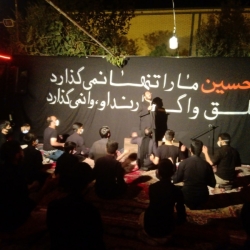 حسین ما را تنها نمی‌گذارد
خلق واگذارند او، وانمی‌گذارد